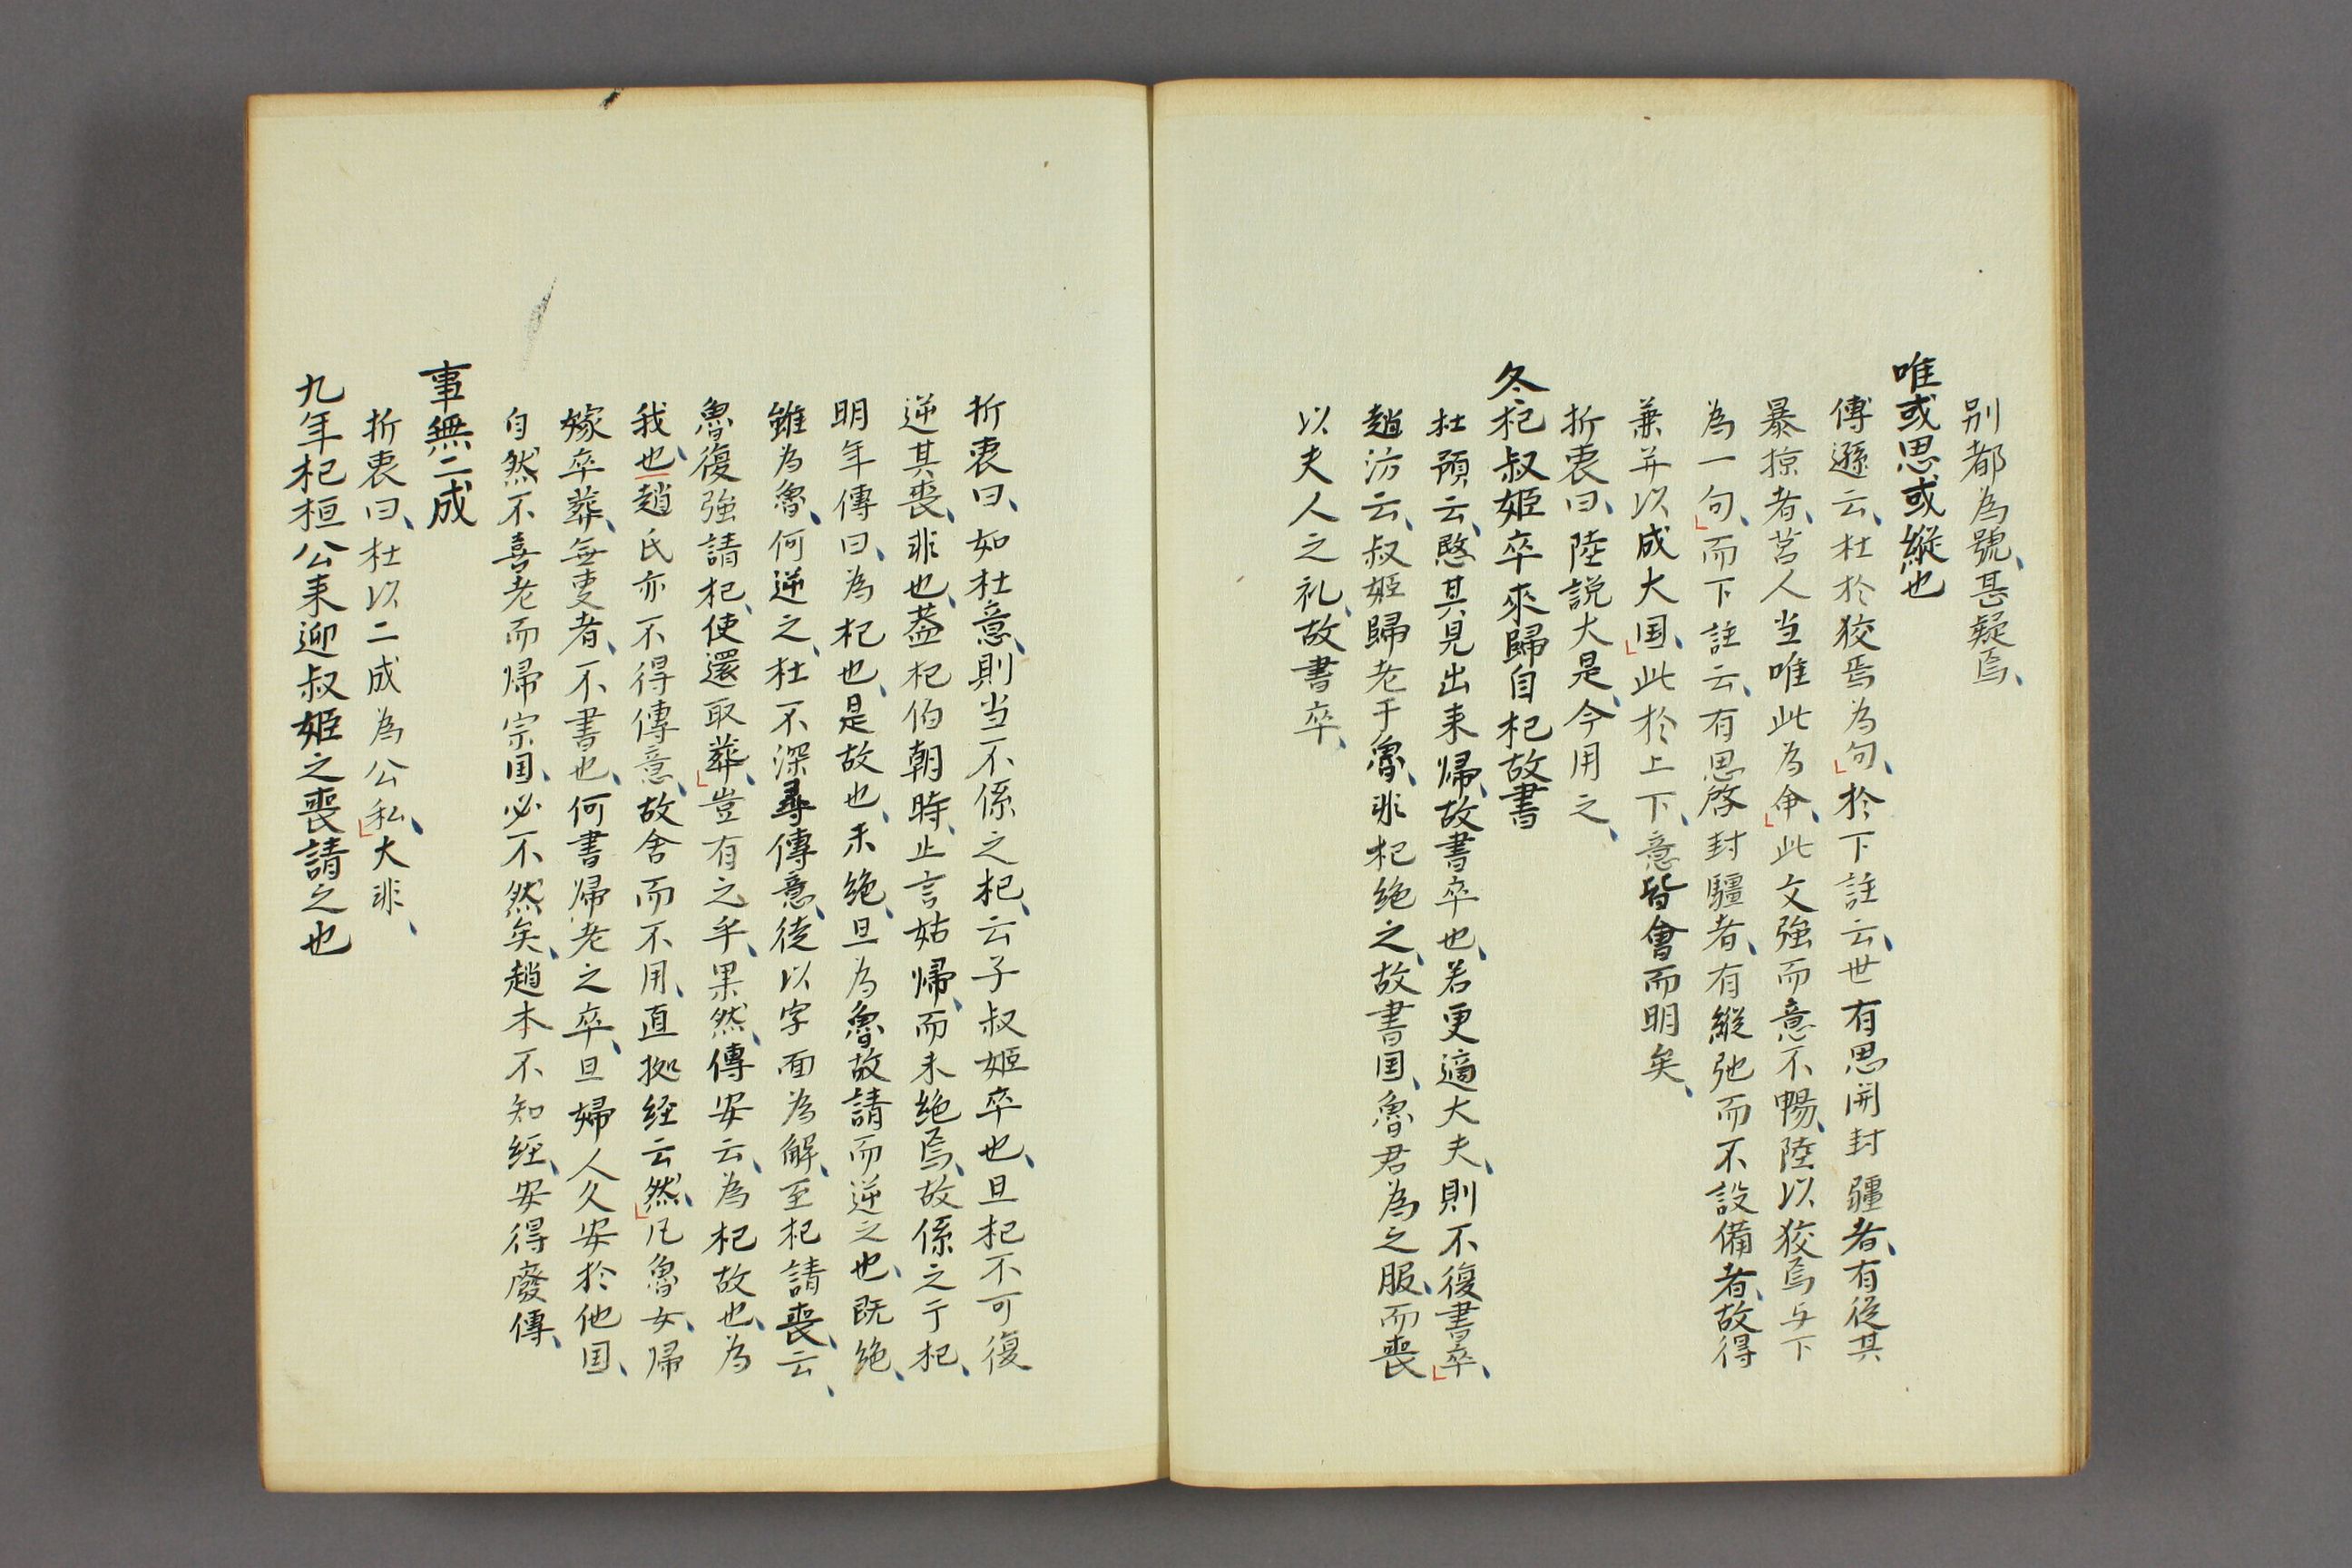 別都為號、甚疑焉、
唯或思或縱也
傅遜云、杜於狡焉為句、於下註云、世有思開封疆者、有從其
暴掠者、莒人当唯此為命、此文強而意不暢、陸以狡焉与下
為一句、而下註云、有思啓封疆者、有縱弛而不設備者、故得
兼并以成大国、此於上下、意皆會而明矣、
折衷曰、陸説大是、今用之、
冬杞叔姬卒來歸自杞故書
杜預云、愍其見出来帰、故書卒也、若更適大夫、則不復書卒、
趙汸云、叔姬歸老于魯、非杞絶之、故書国、魯君為之服、而喪
以夫人之礼、故書卒、
折衷曰、如杜意、則当不係之杞、云子叔姬卒也、且杞不可復
逆其喪、非也、蓋杞伯朝時、止言姑帰、而未絶焉、故係之于杞、
明年傳曰、為杞也、是故也、未絶、且為魯故請而逆之也、既絶、
雖為魯、何逆之、杜不深尋傳意、徒以字面為解、至杞請喪、云、
魯復強請杞、使還取葬、豈有之乎、果然、傳安云、為杞故也、為
我也、趙氏亦不得傳意、故舍而不用、直拠経云然、凡魯女、帰
嫁卒葬、無叓者、不書也、何書帰老之卒、且婦人久安於他国、
自然不喜老而帰宗国、必不然矣、趙本不知経、安得廢傳、
事無二成
折衷曰、杜以二成為公私、大非、
九年杞桓公来迎叔姬之喪請之也